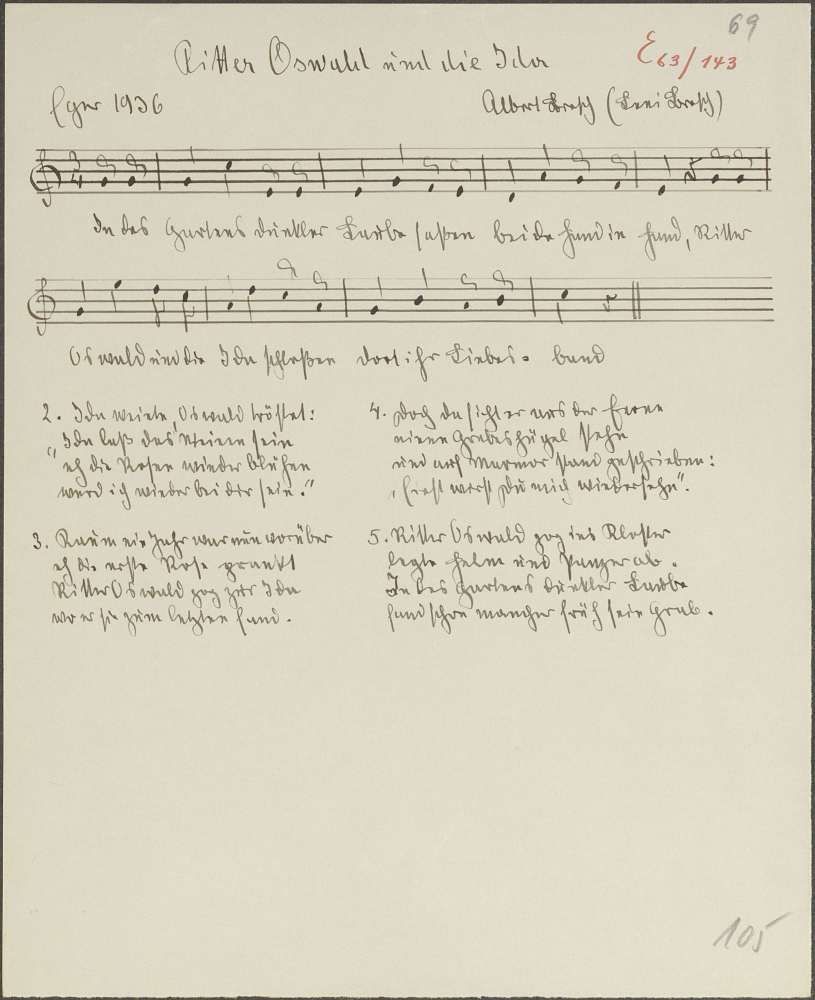 69
Ritter Oswald und die Ida
E 63/143
Eger 1936
Albert Brosch (Leni Brosch)
3/4
In des Gartens dunkler Laube saßen beide Hand in Hand, Ritter
Oswald und die Ida schloßen dort ihr Liebes- band
2. Ida weinte, Oswald tröstet:
"Ida laß das Weinen sein
eh die Rosen wieder blühen
werd ich wieder bei dir sein."
3. Kaum ein Jahr war nun vorüber
eh die erste Rose prankt
Ritter Oswald zog zur Ida
wo er sie zum letzten fand.
4. Doch da sieht er aus der Ferne
einen Grabeshügel stehn
und auf Marmor stand geschrieben:
"Einst wirst Du mich wiedersehn".
5. Ritter Oswald zog ins Kloster
legte Helm und Panzer ab.
In des Gartens dunkler Laube
fand schon mancher früh sein Grab.
105